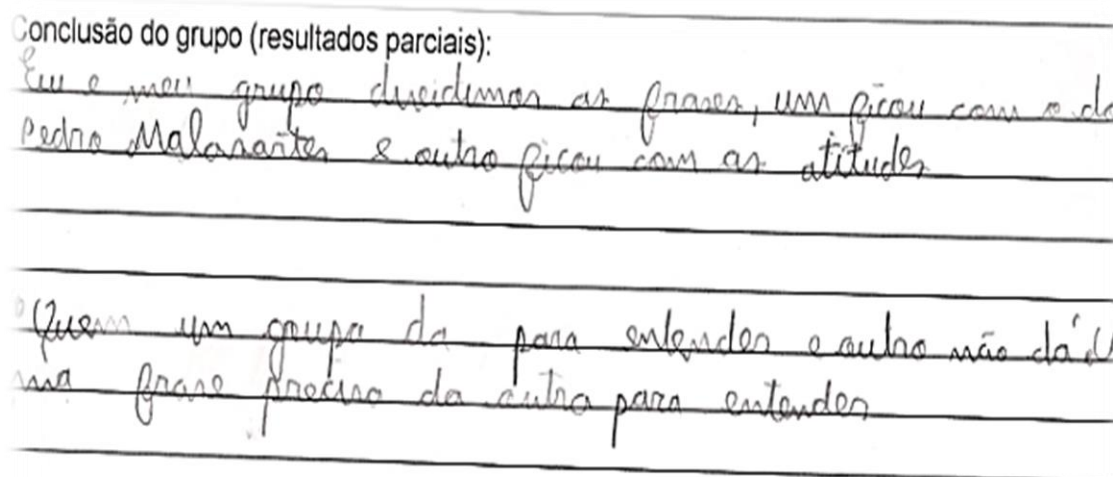 Conclusão do grupo (resultados parciais):
Eu e meu grupo ducidimos as frases, um ficou com o do
Pedro Malasartes e outro ficou com as atitudes
Quem um grupo da para entender e outro não dá. U
ma frase preciso da outra para entender